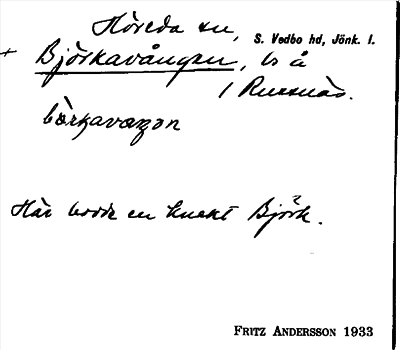 Höreda sn, S. Vedbo hd, Jönk. l.
+ Björkavången, ls å
/ Russnäs.
bö̀rkavaŋən
Här bodde en knekt Björk.
FRITZ ANDERSSON 1933